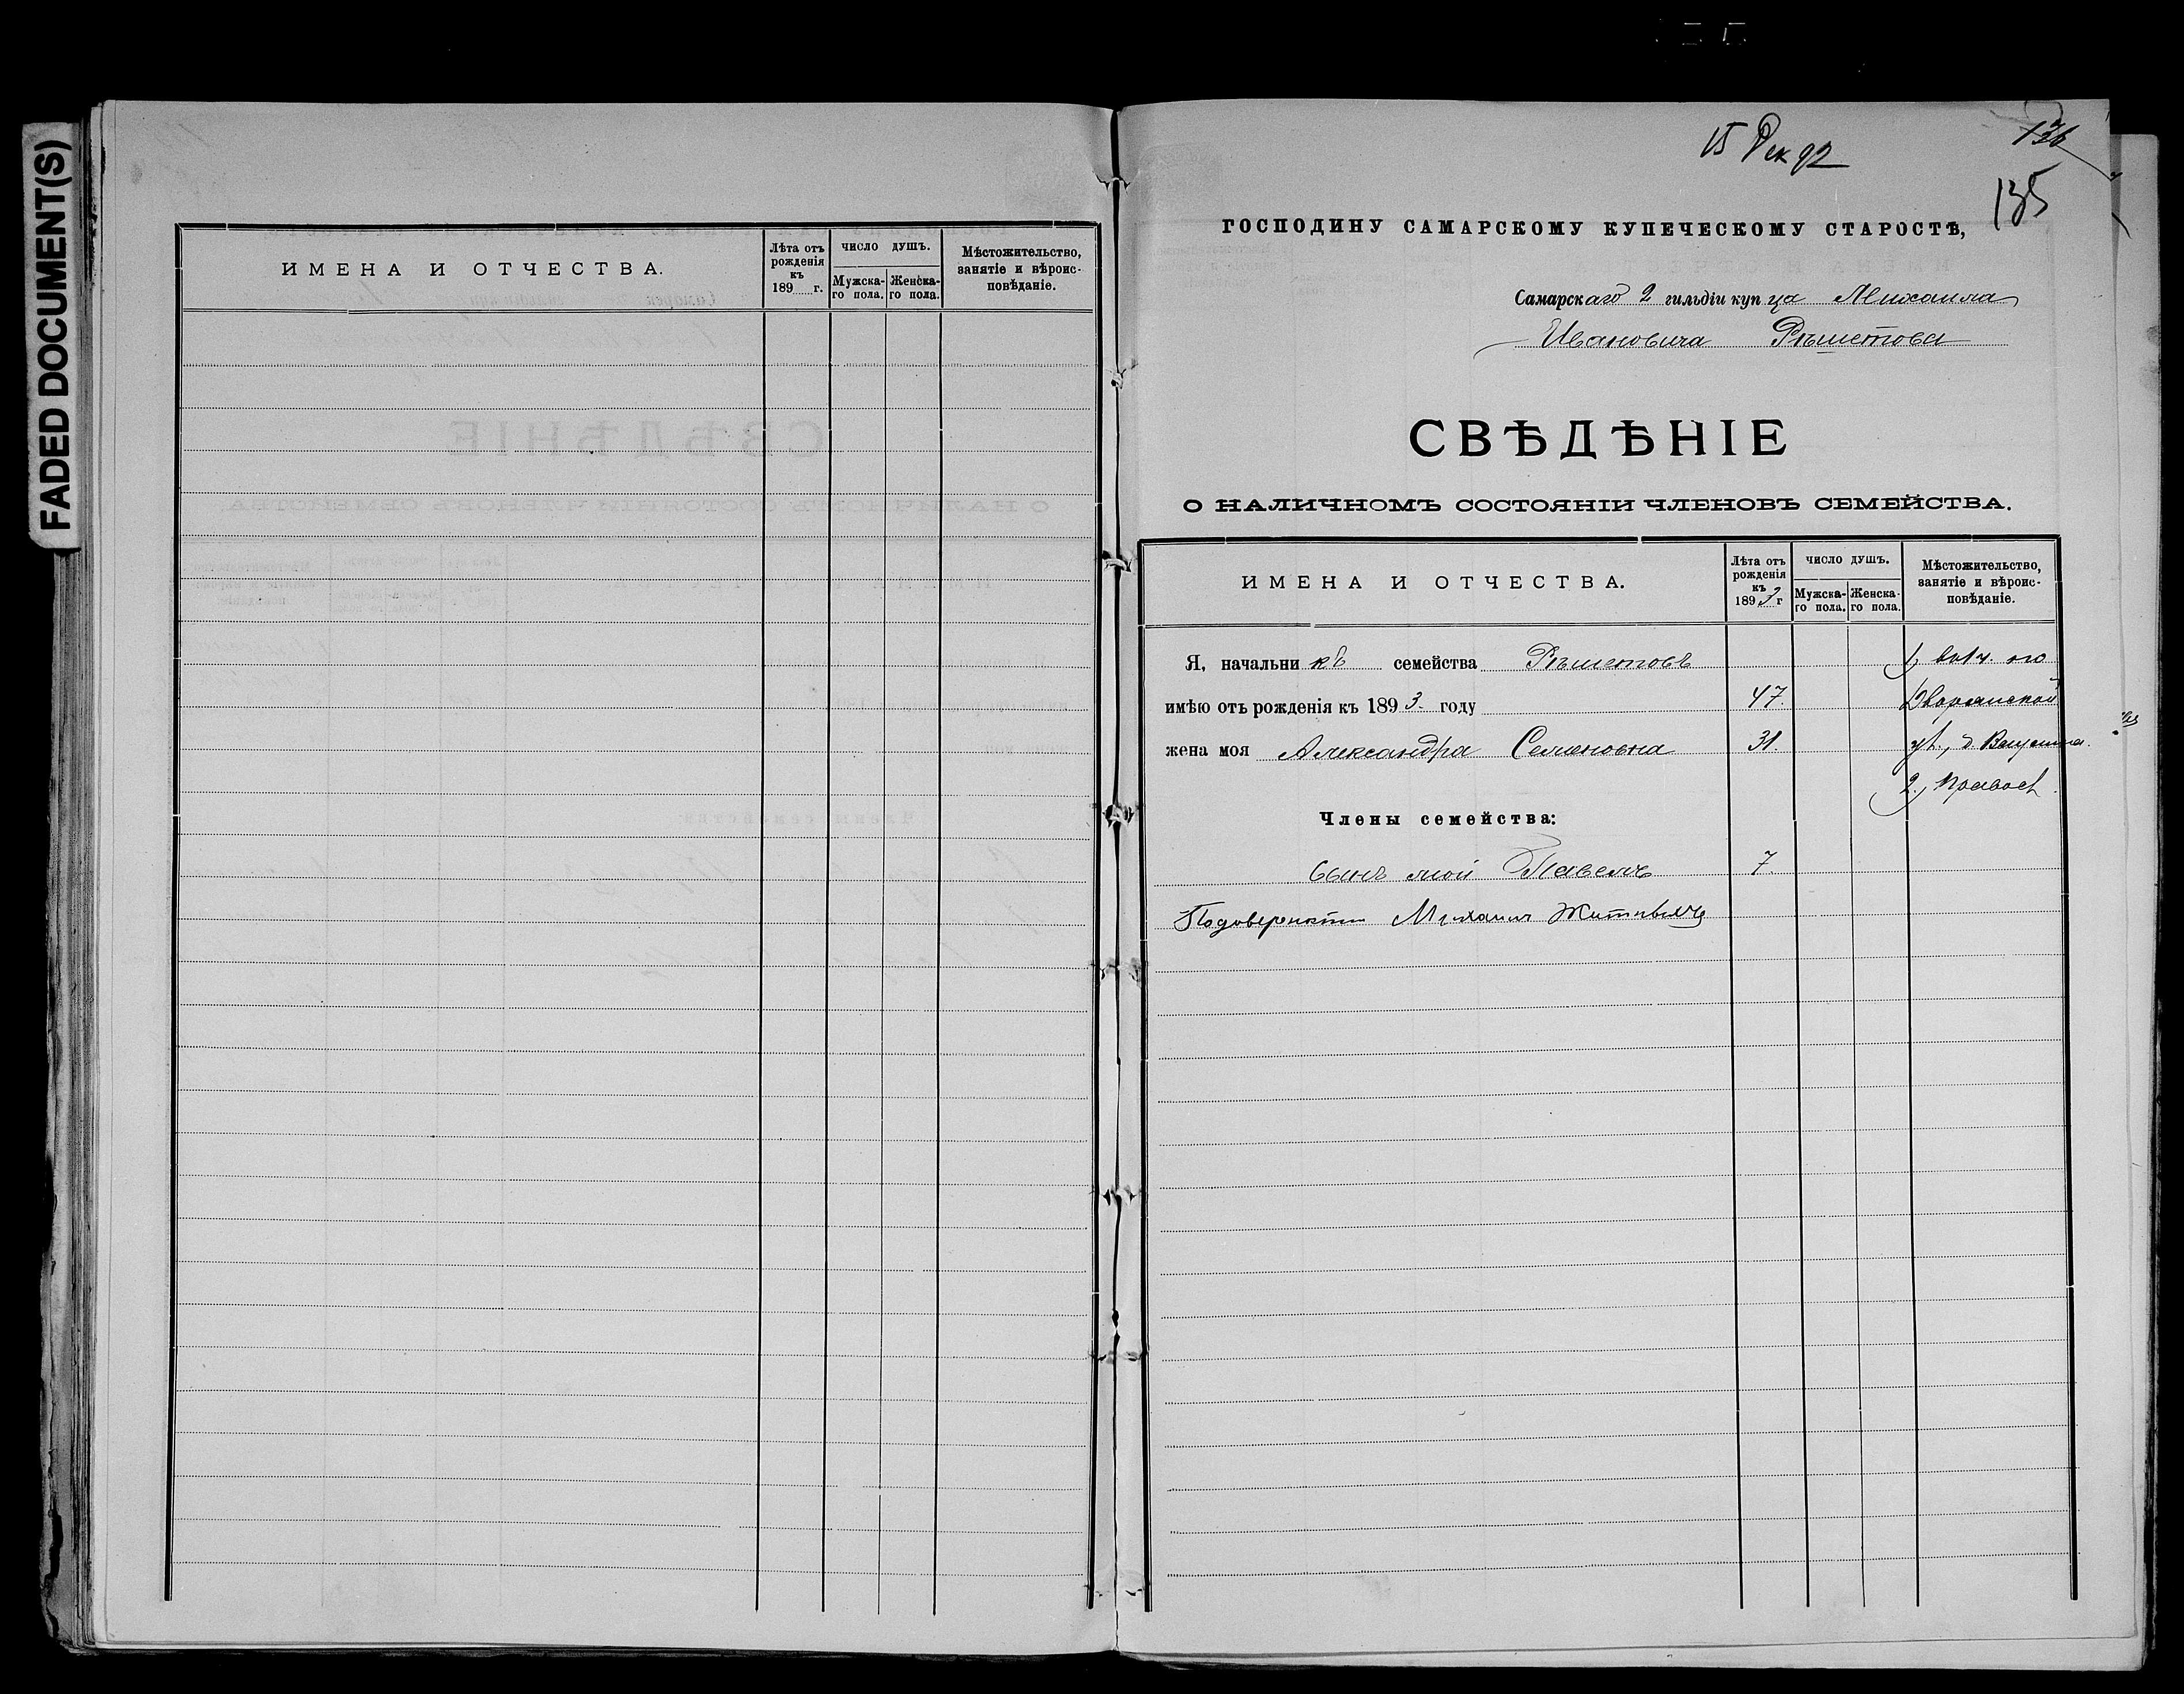 FADED DOCUMENT(S)
ИМЕНА И ОТЧЕСТВА.
Лѣта отъ рожденія къ 189 г.
ЧИСЛО ДУШЪ.
Мужска-го пола.
Женска-го пола.
Мѣстожительство, занятіе и вѣроис-повѣданіе.
15 Дек 92
136
135
ГОСПОДИНУ САМАРСКОМУ КУПЕЧЕСКОМУ СТАРОСТѢ,
Самарскаго 2 гильдіи купца Михаила
Ивановича Рѣшетова
СВѢДѢНІЕ
О НАЛИЧНОМЪ СОСТОЯНІИ ЧЛЕНОВЪ СЕМЕЙСТВА.
ИМЕНА И ОТЧЕСТВА.
Лѣта отъ рожденія къ 1893 г
ЧИСЛО ДУШЪ.
Мужска-го пола.
Женска-го пола.
Мѣстожительство, занятіе и вѣроис-повѣданіе.
Я, начальникъ семейства Рѣшетовъ
имѣю отъ рожденія къ 1893. году 47. Дворянской
жена моя Александра Семеновна 31. ул.,
2, правосл.
Члены семейства:
сынъ мой Павелъ 7.
Михаилъ